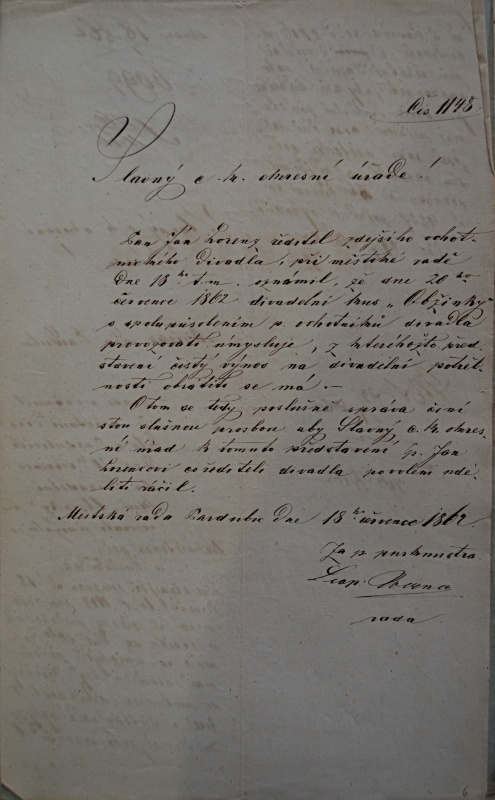 Čís 1148.
Slavný c. kr. okresní úřade!
Pan Ján Lorenz ředitel zdejšího ochot-
nického divadla, při městské radě
dne 18ho t.m. oznámil, že dne 20ho
července 1862 divadelní kus „Obžinky"
s spolupůsobením p. ochotníků divadla
provozovati úmysluje, z kteréhožto před-
stavení čistý výnos na divadelní potřeb-
nosti obrátiti se má. –
O tom se tedy poslušně zpráva činí
stou slušnou prosbou aby Slavný c. kr. okres-
ní úřad k tomuto představení p. Jan
Lorencovi co řediteli divadla povolení udě-
liti ráčil.
Městská rada Pardubic dne 18ho července 1862.
Za p. purkmistra
Leop.
rada
6